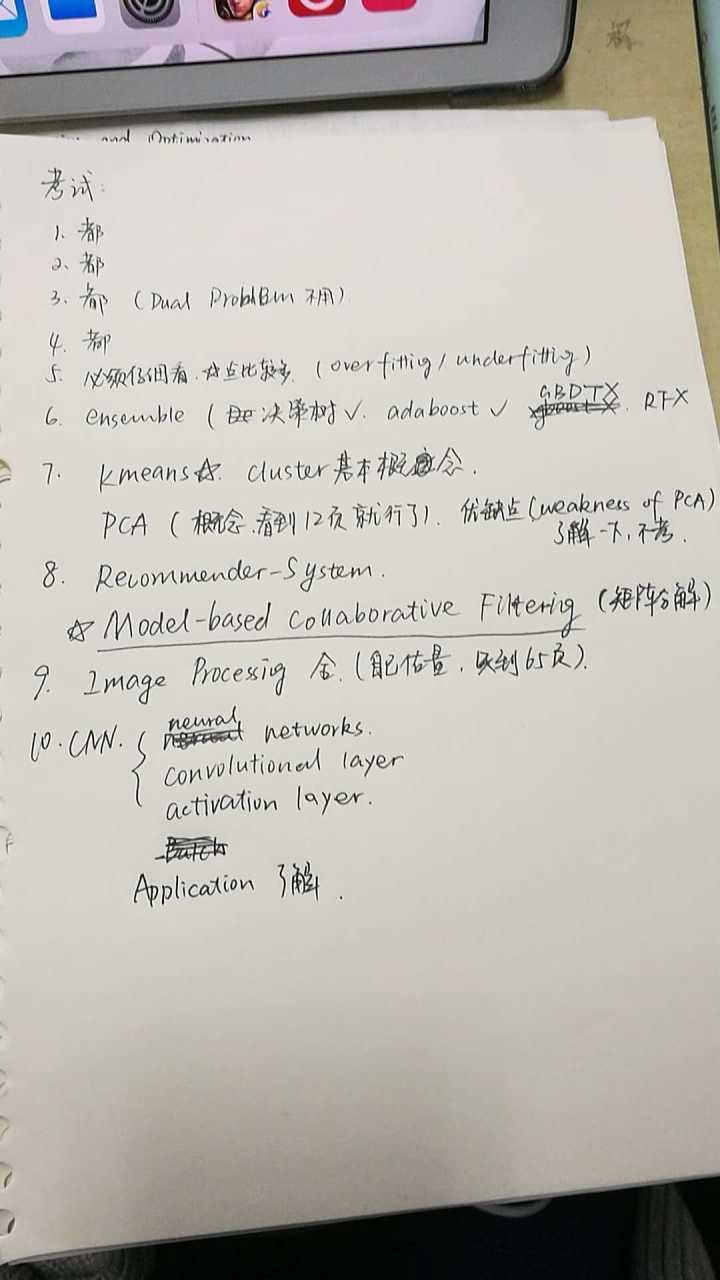 and Optimization
考试:
1. 都
2. 都
3. 都 (Dual Problem 不用)
4. 都
5. 必须仔细看. 考点比较多. (overfitting / underfitting)
6. ensemble ( 决策树 ✓. adaboost ✓ GBDT X. RF X
7. kmeans ☆. cluster 基本概念.
PCA ( 概念. 看到12页就行了). 优缺点 (weakness of PCA)
了解一下, 不考.
8. Recommender-System.
☆ Model-based Collaborative Filtering (矩阵分解)
9. Image Processig 全. (自己估量. 到65页).
10. CNN. { neural networks.
convolutional layer
activation layer.
Application 了解.